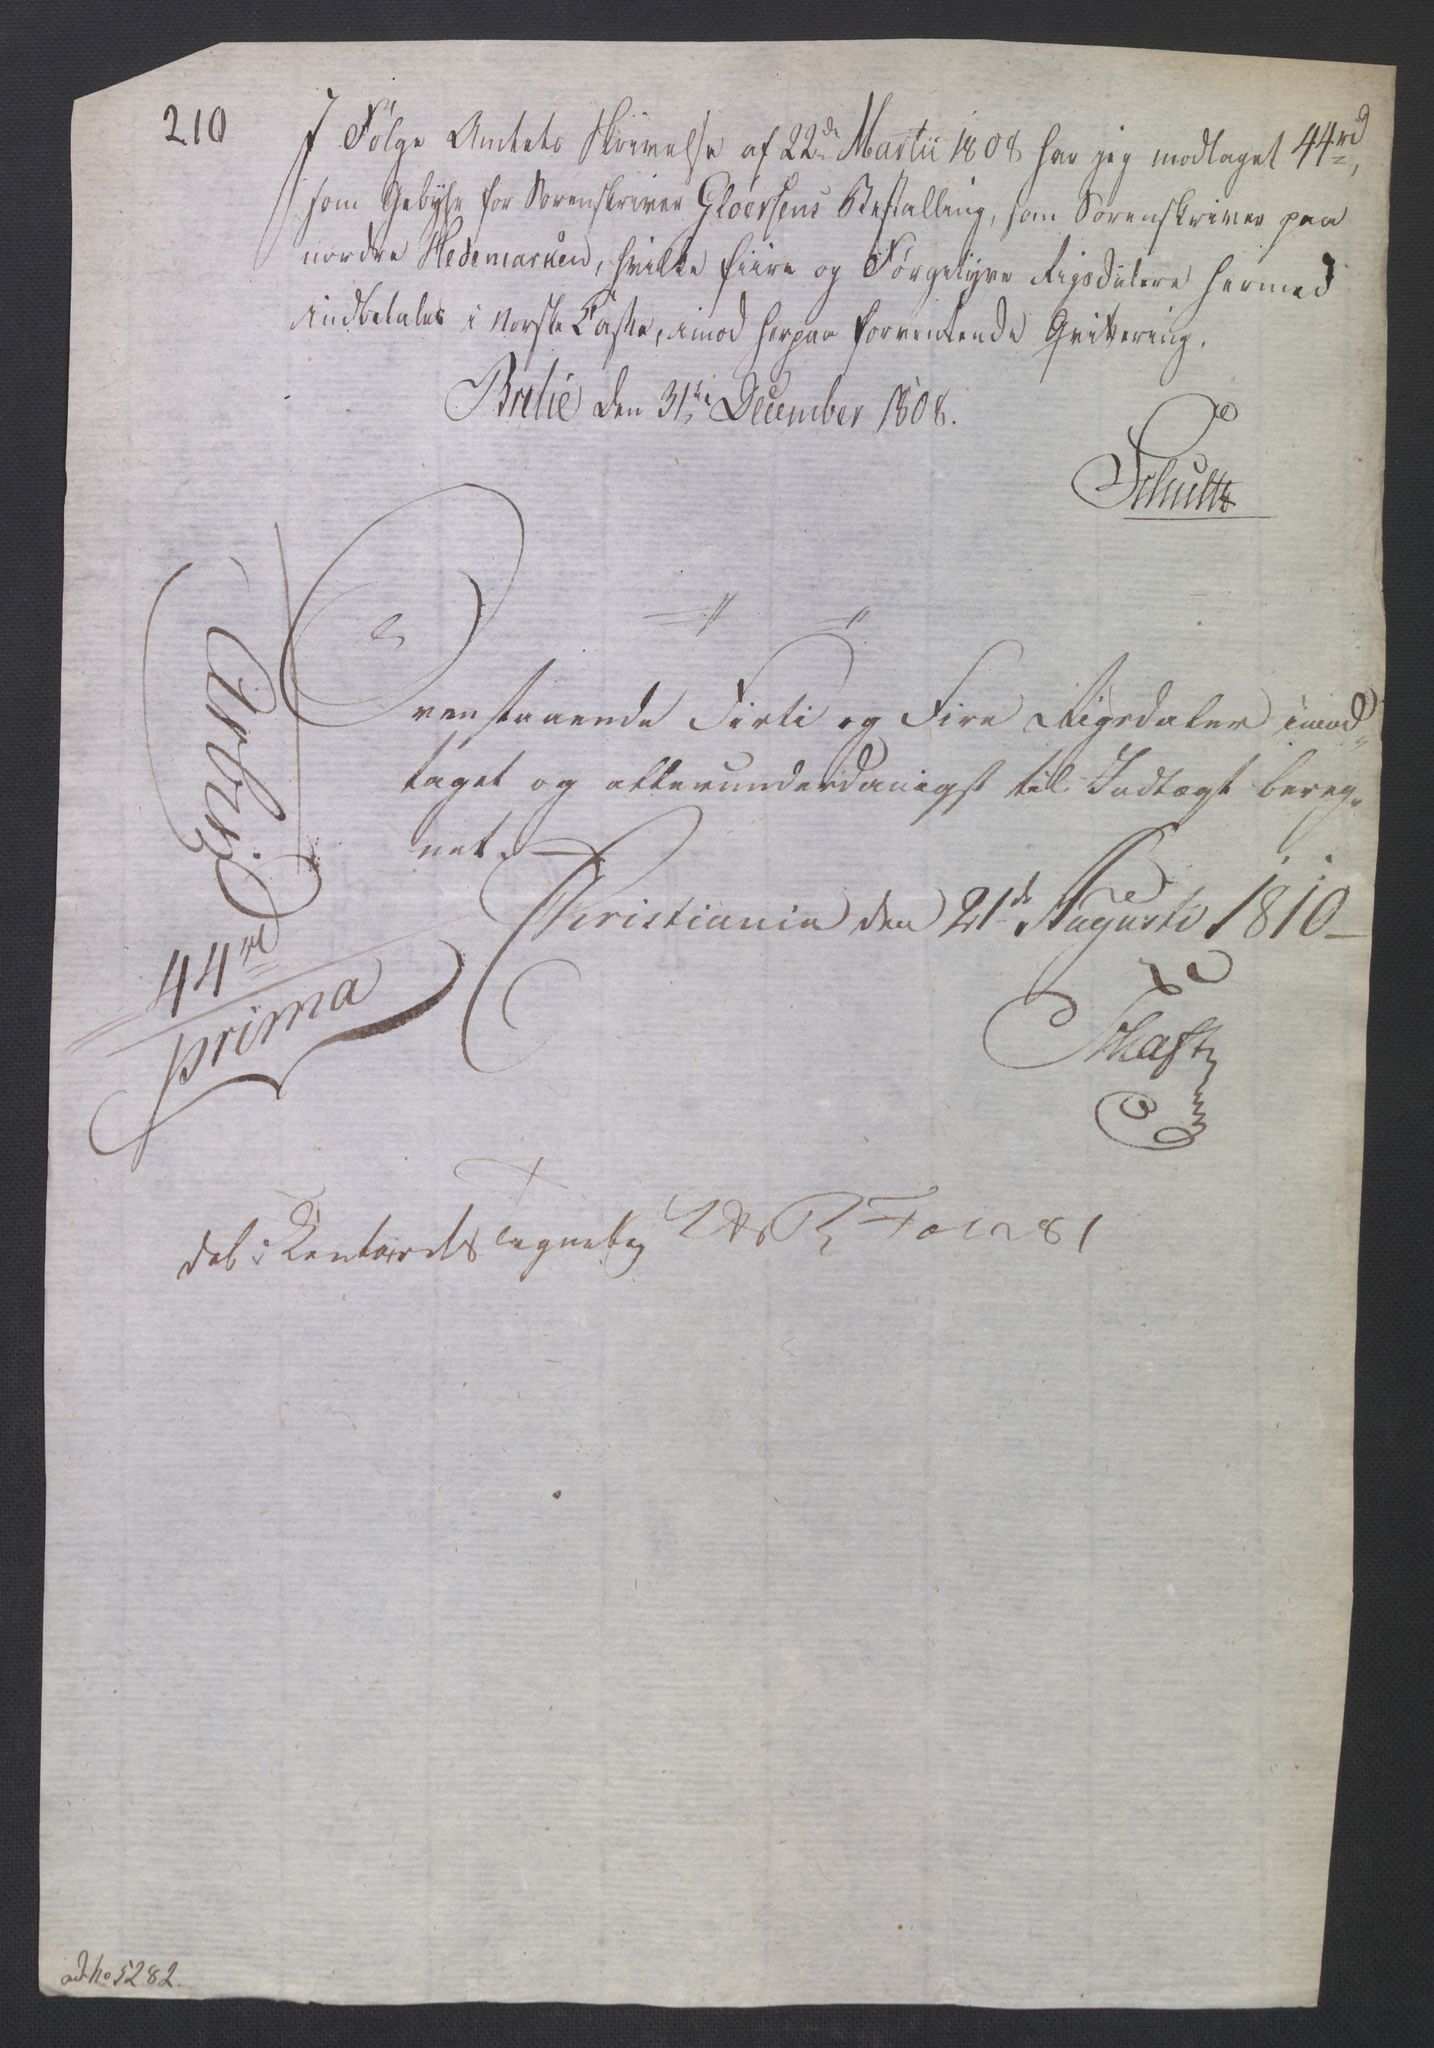 210
I Følge Amtets Skrivelse af 22de Martii 1808 har jeg modtaget 44rd,
som Gebyhr for Sorenskriver Gloersens Bestalling, som Sorenskriver paa
nordre Hedemarken, hvilke fiire og Førgetyve Rigsdalere hermed
indbetales i Norske Casse, imod herpaa forventende Qvittering.
den 31te December 1808.
Schultz
Ovenstaaende Firti og Fire Rigsdaler imod-
taget og allerunderdanigst til Indtægt bereg-
net.
Christiania den 21de Augusti 1810
44rd
prima
deb i
ad No 5282.